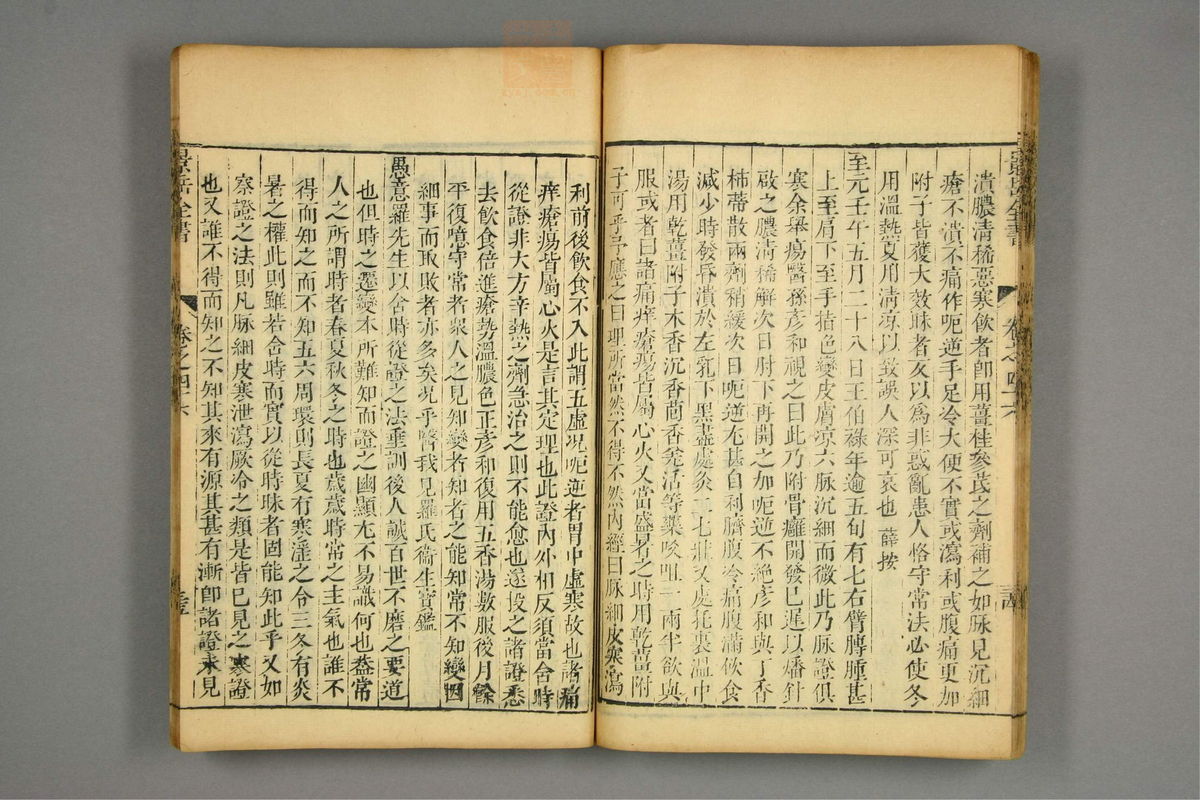 潰膿清稀惡寒飲者卽用薑桂參芪之劑補之如脉見沉細
瘡不潰不痛作呃逆手足冷大便不實或瀉利或腹痛更加
附子皆獲大效昧者反以爲非惑亂患人恪守常法必使冬
用溫熱夏用清凉以致誤人深可哀也 薛按
至元壬午五月二十八日王伯祿年逾五旬有七右臂膊腫甚
上至肩下至手指色變皮膚凉六脉沉細而微此乃脉證俱
寒余舉瘍醫孫彥和視之曰此乃附骨癰開發已遲以燔針
啟之膿清稀解次日肘下再開之加呃逆不絕彥和與丁香
柿蒂散兩劑稍緩次日呃逆尢甚自利臍腹冷痛腹滿飲食
減少時發昏潰於左乳下黑盡處灸二七壯又處托裏溫中
湯用乾薑附子木香沉香茴香羌活等藥㕮咀一兩半欲與
服或者曰諸痛痒瘡瘍皆屬心火又當盛暑之時用乾薑附
子可乎予應之曰理所當然不得不然內經曰脉細皮寒瀉
利前後飲食不入此謂五虛况呃逆者胃中虛寒故也諸痛
痒瘡瘍皆屬心火是言其定理也此證內外相反須當舍時
從證非大方辛熱之劑急治之則不能愈也遂投之諸證悉
去飲食倍進瘡勢溫膿色正彥和復用五香湯數服後月餘
平復噫守常者衆人之見知變者知者之能知常不知變因
細事而取敗者亦多矣况乎醫我見羅氏衞生寶鑑
愚意羅先生以舍時從證之法垂訓後人誠百世不磨之要道
也但時之遷變本所難知而證之幽顯尢不易識何也葢常
人之所謂時者春夏秋冬之時也歲歲時常之主氣也誰不
得而知之而不知五六周環則長夏有寒淫之令三冬有炎
暑之權此則雖若舍時而實以從時昧者固能知此乎又如
察證之法則凡脉細皮寒泄瀉厥冷之類是皆已見之寒證
也又誰不得而知之不知其來有源其甚有漸卽諸證未見
景岳全書
卷之四十六